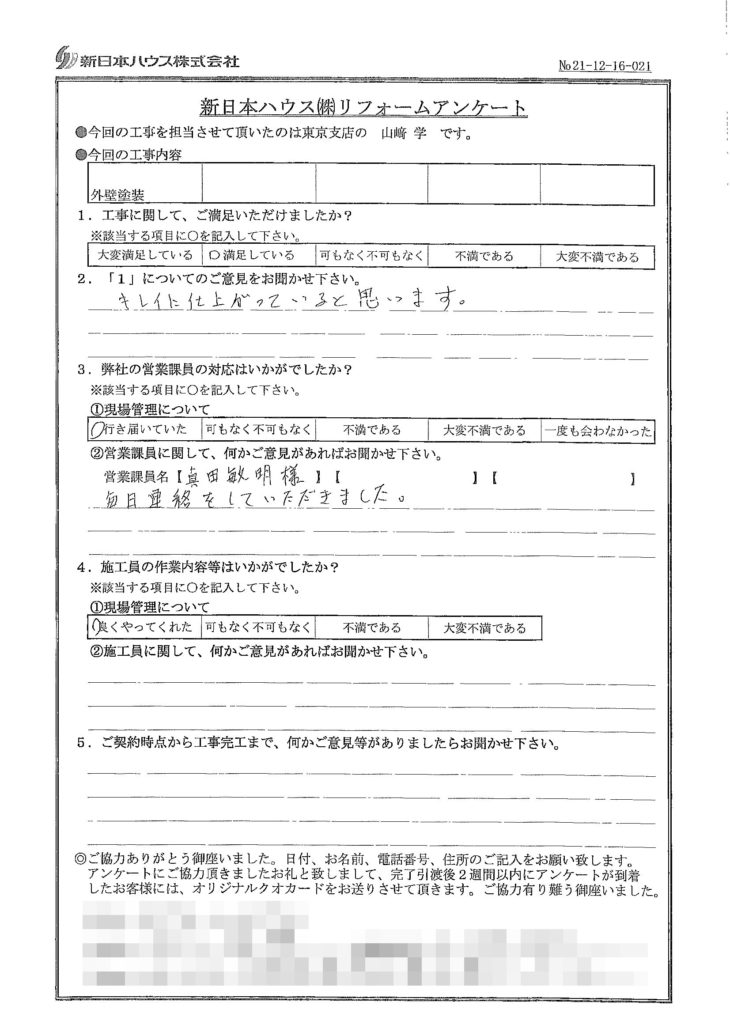 新日本ハウス株式会社
No21-12-16-021
新日本ハウス㈱リフォームアンケート
●今回の工事を担当させて頂いたのは東京支店の 山﨑 学 です。
●今回の工事内容
外壁塗装
1.工事に関して、ご満足いただけましたか?
※該当する項目に○を記入して下さい。
大変満足している ○満足している 可もなく不可もなく 不満である 大変不満である
2.「1」についてのご意見をお聞かせ下さい。
キレイに仕上がっていると思います。
3.弊社の営業課員の対応はいかがでしたか?
※該当する項目に○を記入して下さい。
①現場管理について
○行き届いていた 可もなく不可もなく 不満である 大変不満である 一度も会わなかった
②営業課員に関して、何かご意見があればお聞かせ下さい。
営業課員名【真田敏明様 】【 】【 】
毎日連絡をしていただきました。
4.施工員の作業内容等はいかがでしたか?
※該当する項目に○を記入して下さい。
①現場管理について
○良くやってくれた 可もなく不可もなく 不満である 大変不満である
②施工員に関して、何かご意見があればお聞かせ下さい。
5.ご契約時点から工事完工まで、何かご意見等がありましたらお聞かせ下さい。
◎ご協力ありがとう御座いました。日付、お名前、電話番号、住所のご記入をお願い致します。
アンケートにご協力頂きましたお礼と致しまして、完了引渡後2週間以内にアンケートが到着
したお客様には、オリジナルクオカードをお送りさせて頂きます。ご協力有り難う御座いました。